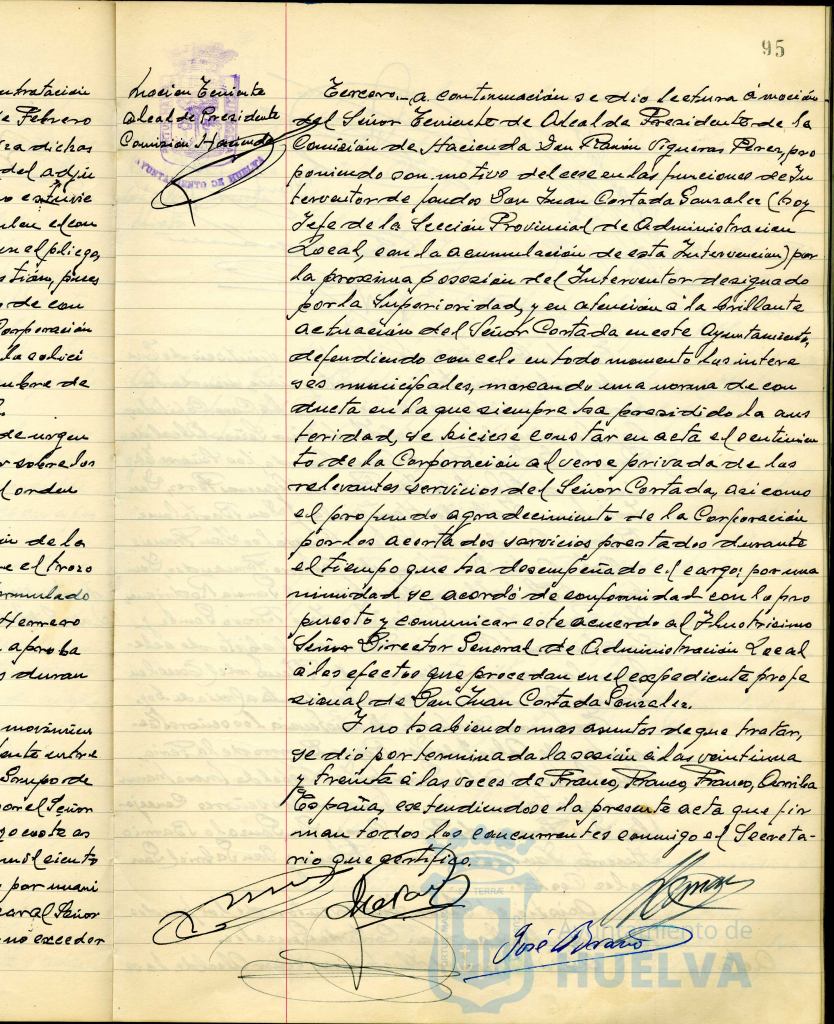 95
ntratación
e Febrero
dichas
del adju
en el pliego,
de con
Corporación
la solici
mbre de
de urgen
r sobre los
l orden
in de la
e el trozo
ormulado
Herrero
aproba
s duran
Grupo de
por el Señor
por unani
no exceder
Moción Teniente
Alcalde Presidente
Comisión Hacienda
AYUNTAMIENTO DE HUELVA
Tercero.- A continuación se dio lectura á moción
del Señor Teniente de Alcalde Presidente de la
Comisión de Hacienda Don Ramón Vigueras Perez, pro
poniendo con motivo del cese en las funciones de In
terventor de fondos Don Juan Cortada Gonzalez (hoy
Jefe de la Sección Provincial de Administracion
Local, con la acumulación de esta Intervención) por
la proxima posesión del Interventor designado
por la Superioridad, y en atención á la brillante
actuación del Señor Cortada en este Ayuntamiento,
defendiendo con celo en todo momento los intere
ses municipales, marcando una norma de con
ducta en la que siempre ha presidido la aus
teridad, se hiciese constar en acta el sentimien
to de la Corporación al verse privada de los
relevantes servicios del Señor Cortada, asi como
el profundo agradecimiento de la Corporación
por los acertados servicios prestados durante
el tiempo que ha desempeñado el cargo; por una
nimidad se acordó de conformidad con lo pro
puesto y comunicar este acuerdo al Ilustrisimo
Señor Director General de Administración Local
á los efectos que procedan en el expediente profe
sional de Don Juan Cortada Gonzalez.
Y no habiendo mas asuntos de que tratar,
se dió por terminada la sesión á las veintiuna
y treinta á las voces de Franco, Franco, Franco, Arriba
España, extendiendose la presente acta que fir
man todos los concurrentes conmigo el Secreta-
rio que certifico.
José
Ayuntamiento de
HUELVA